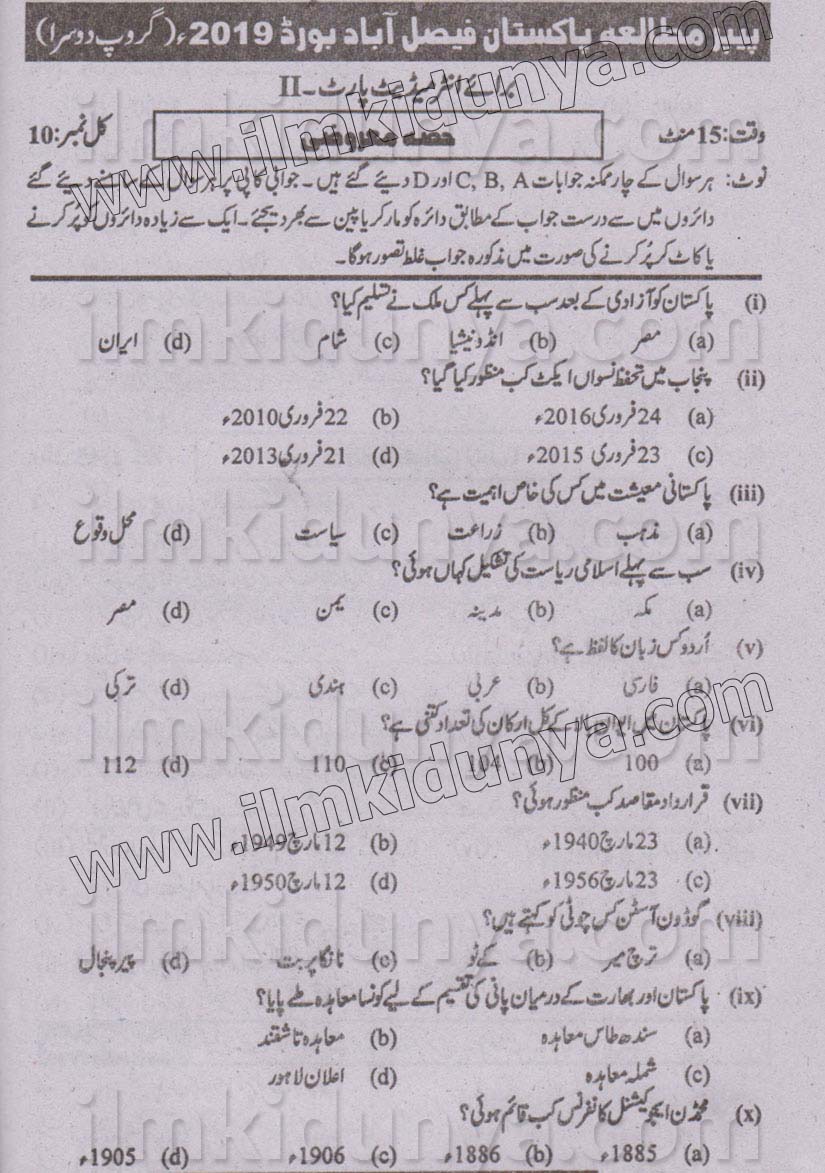 پیپر مطالعہ پاکستان فیصل آباد بورڈ 2019ء (گروپ دوسرا)
برائے انٹرمیڈیٹ پارٹ - II
وقت: 15 منٹ حصہ معروضی کل نمبر: 10
نوٹ: ہر سوال کے چار ممکنہ جوابات C, B, A اور D دیئے گئے ہیں۔ جوابی کاپی پر ہر سوال کے سامنے دیئے گئے
دائروں میں سے درست جواب کے مطابق دائرہ کو مارکر یا پین سے بھر دیجئے۔ ایک سے زیادہ دائروں کو پُر کرنے
یا کاٹ کر پُر کرنے کی صورت میں مذکورہ جواب غلط تصور ہوگا۔
(i) پاکستان کو آزادی کے بعد سب سے پہلے کس ملک نے تسلیم کیا؟
(a) مصر (b) انڈونیشیا (c) شام (d) ایران
(ii) پنجاب میں تحفظ نسواں ایکٹ کب منظور کیا گیا؟
(a) 24 فروری 2016ء (b) 22 فروری 2010ء
(c) 23 فروری 2015ء (d) 21 فروری 2013ء
(iii) پاکستانی معیشت میں کس کی خاص اہمیت ہے؟
(a) مذہب (b) زراعت (c) سیاست (d) محل وقوع
(iv) سب سے پہلے اسلامی ریاست کی تشکیل کہاں ہوئی؟
(a) مکہ (b) مدینہ (c) یمن (d) مصر
(v) اُردو کس زبان کا لفظ ہے؟
(a) فارسی (b) عربی (c) ہندی (d) ترکی
(vi) پاکستان میں ایوان بالا کے کل ارکان کی تعداد کتنی ہے؟
(a) 100 (b) 104 (c) 110 (d) 112
(vii) قرارداد مقاصد کب منظور ہوئی؟
(a) 23 مارچ 1940ء (b) 12 مارچ 1949ء
(c) 23 مارچ 1956ء (d) 12 مارچ 1950ء
(viii) گوڈون آسٹن کس چوٹی کو کہتے ہیں؟
(a) ترچ میر (b) کے ٹو (c) نانگا پربت (d) پیر پنجال
(ix) پاکستان اور بھارت کے درمیان پانی کی تقسیم کے لیے کونسا معاہدہ طے پایا؟
(a) سندھ طاس معاہدہ (b) معاہدہ تاشقند
(c) شملہ معاہدہ (d) اعلان لاہور
(x) محمڈن ایجوکیشنل کانفرنس کب قائم ہوئی؟
(a) 1885ء (b) 1886ء (c) 1906ء (d) 1905ء
www.ilmkidunya.com
www.ilmkidunya.com
ilmkidunya.com
ilmkidunya.com
ilmkidunya.com
ilmkidunya.com
ilmkidunya.com
ilmkidunya.com